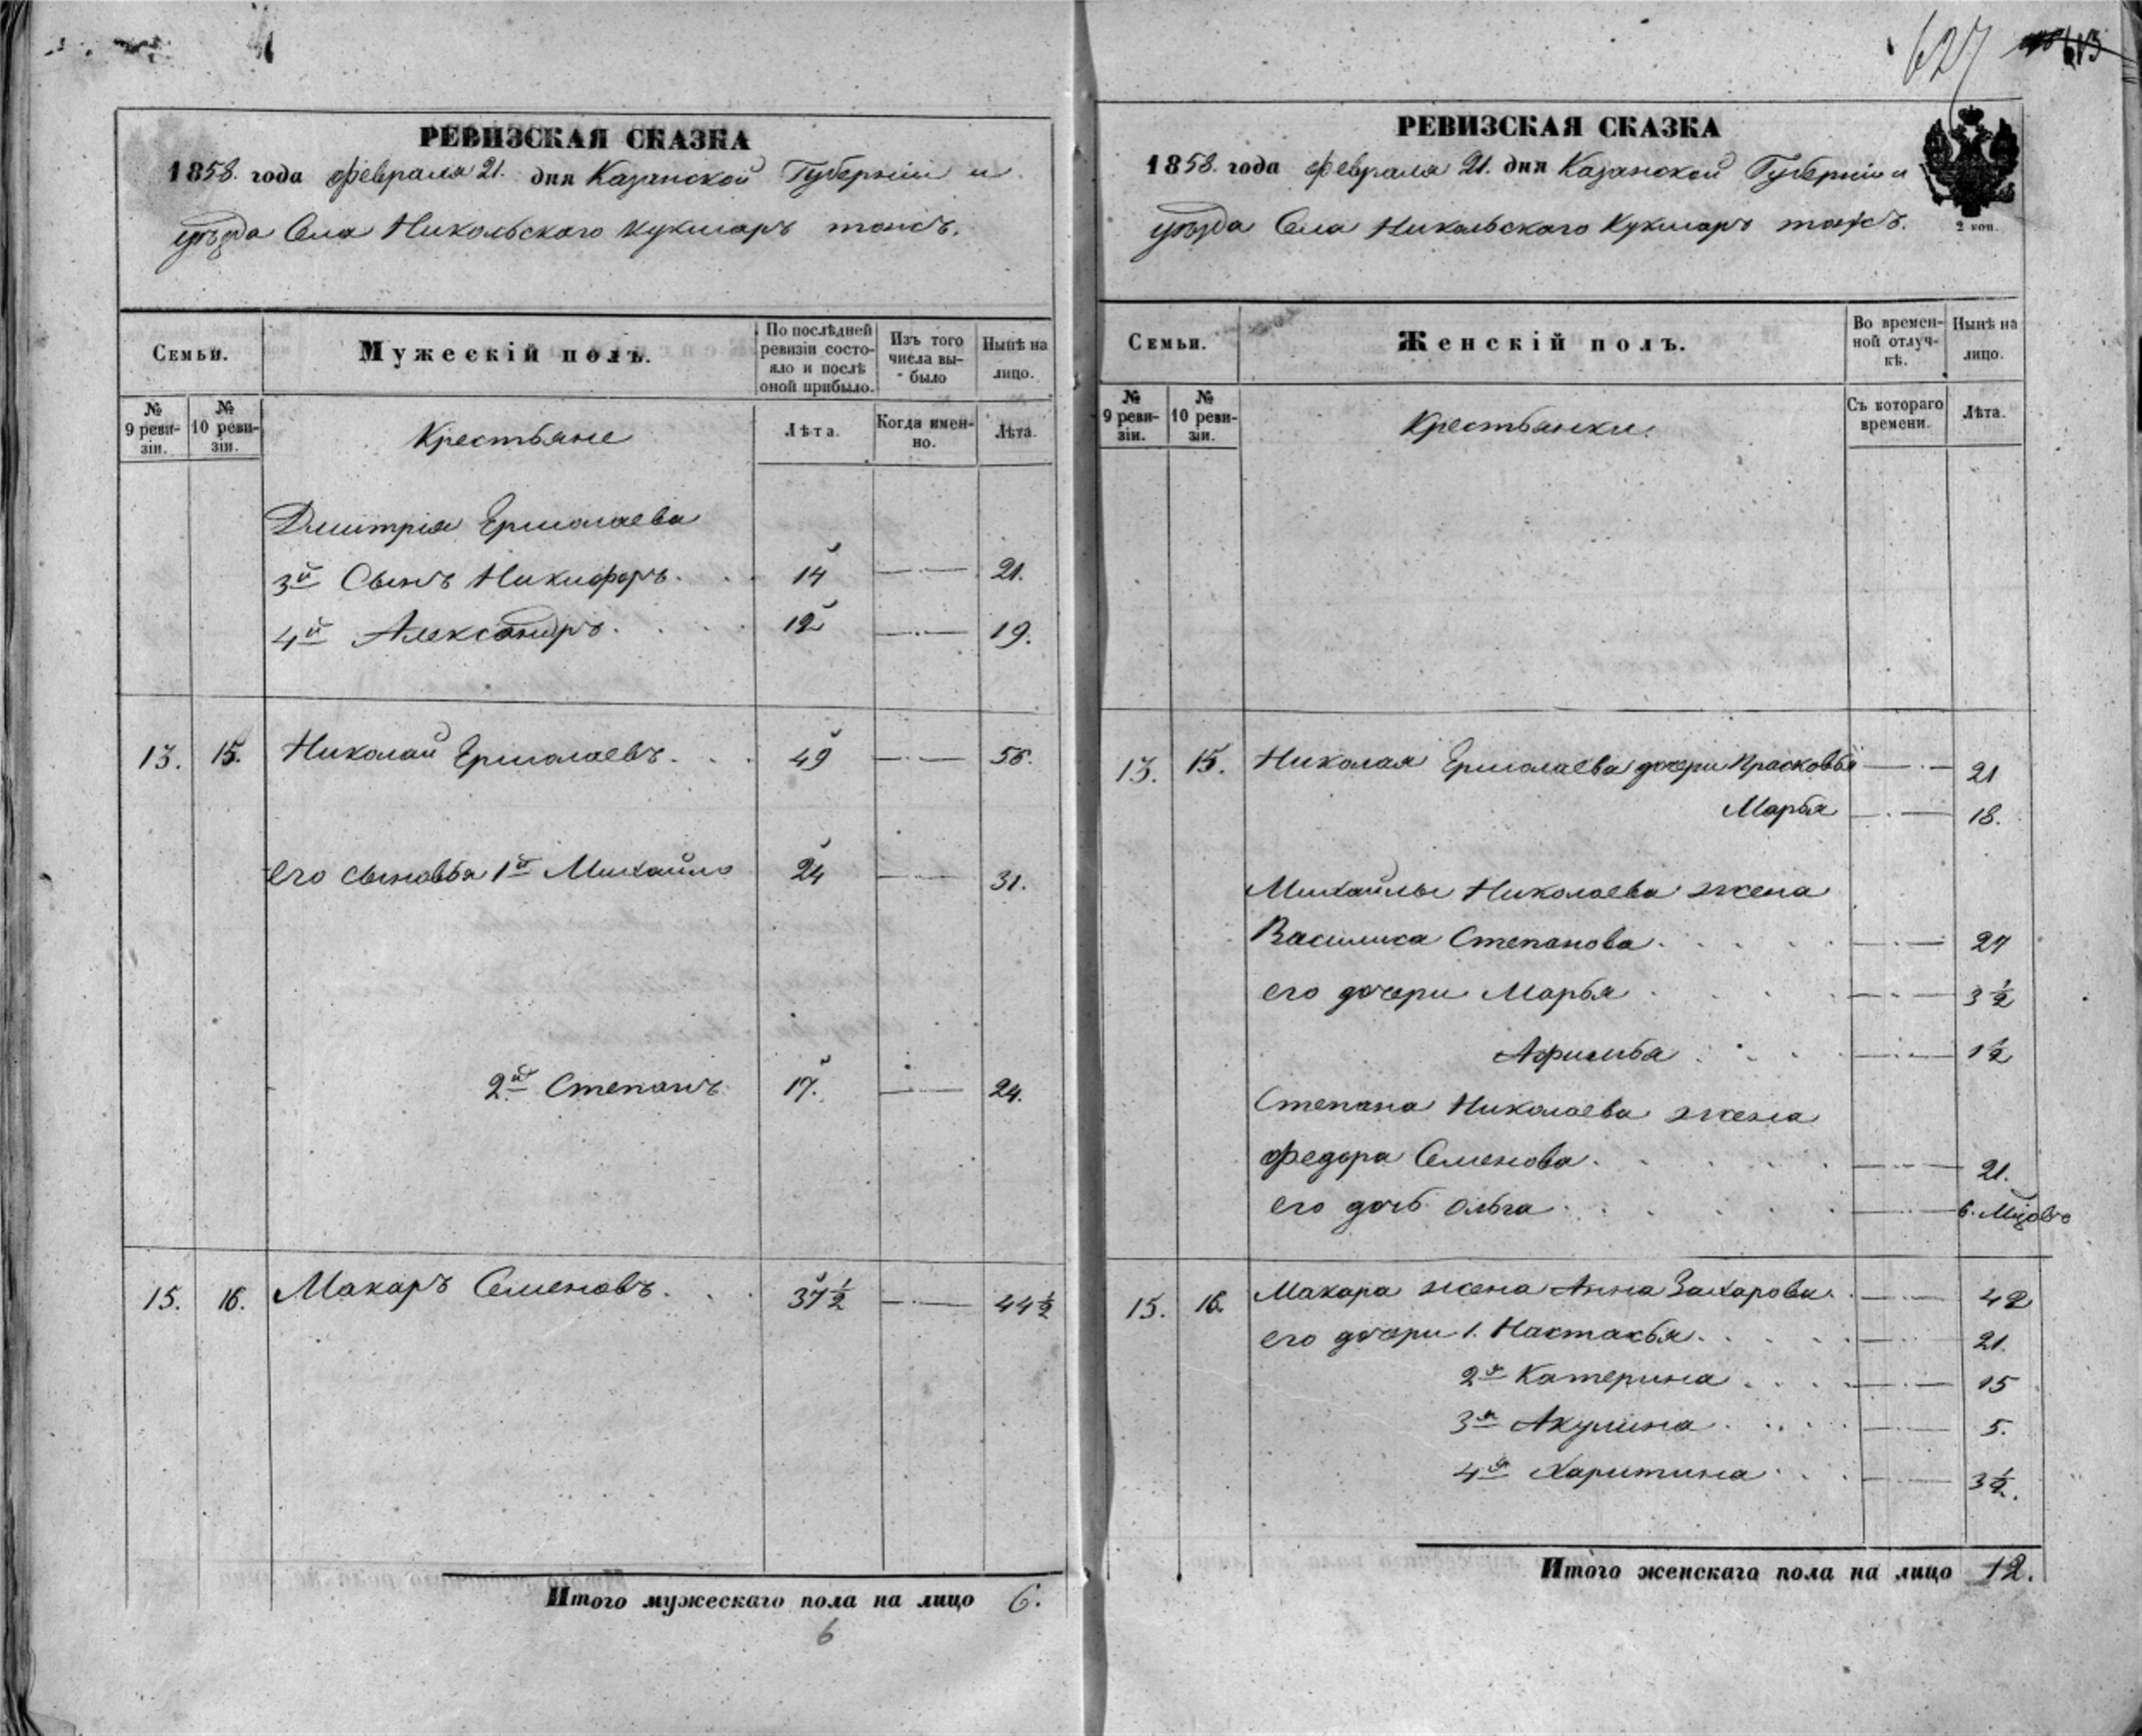 РЕВИЗСКАЯ СКАЗКА
1858. года февраля 21. дня Казанской Губерніи и
уѣзда Села Никольского Кукмаръ тожъ.
Семьи.
Мужескій полъ.
По послѣдней ревизіи состояло и послѣ оной прибыло.
Изъ того числа выбыло
Нынѣ на лицо.
№ 9 ревизіи.
№ 10 ревизіи.
Крестьяне
Лѣта.
Когда именно.
Лѣта.
Дмитрія Ермолаева
3й Сынъ Никифоръ. 14 21.
4й Александръ. 12 19.
13. 15. Николай Ермолаевъ. 49 56.
его сыновья 1й Михайло 24 31.
2й Степанъ 17. 24.
15. 16. Макаръ Семеновъ. 37 1/2 44 1/2
Итого мужескаго пола на лицо 6.
6
627
613
РЕВИЗСКАЯ СКАЗКА
1858. года февраля 21. дня Казанской Губерніи и
уѣзда Села Никольского Кукмаръ тожъ.
2 коп.
Семьи.
Женскій полъ.
Во временной отлучкѣ.
Нынѣ на лицо.
№ 9 ревизіи.
№ 10 ревизіи.
Крестьянки.
Съ котораго времени.
Лѣта.
13. 15. Николая Ермолаева дочери Прасковья 21
Марья 18.
Михайлы Николаева жена
Василиса Степанова 27
его дочери Марья 3 1/2
Афимья 1 1/2
Степана Николаева жена
Федора Семенова. 21.
его дочь Ольга 6. Мцовъ
15. 16. Макара жена Анна Захарова. 42
его дочери 1. Настасья. 21.
2я Катерина 15
3я Акулина 5.
4я Харитина 3 1/2.
Итого женскаго пола на лицо 12.